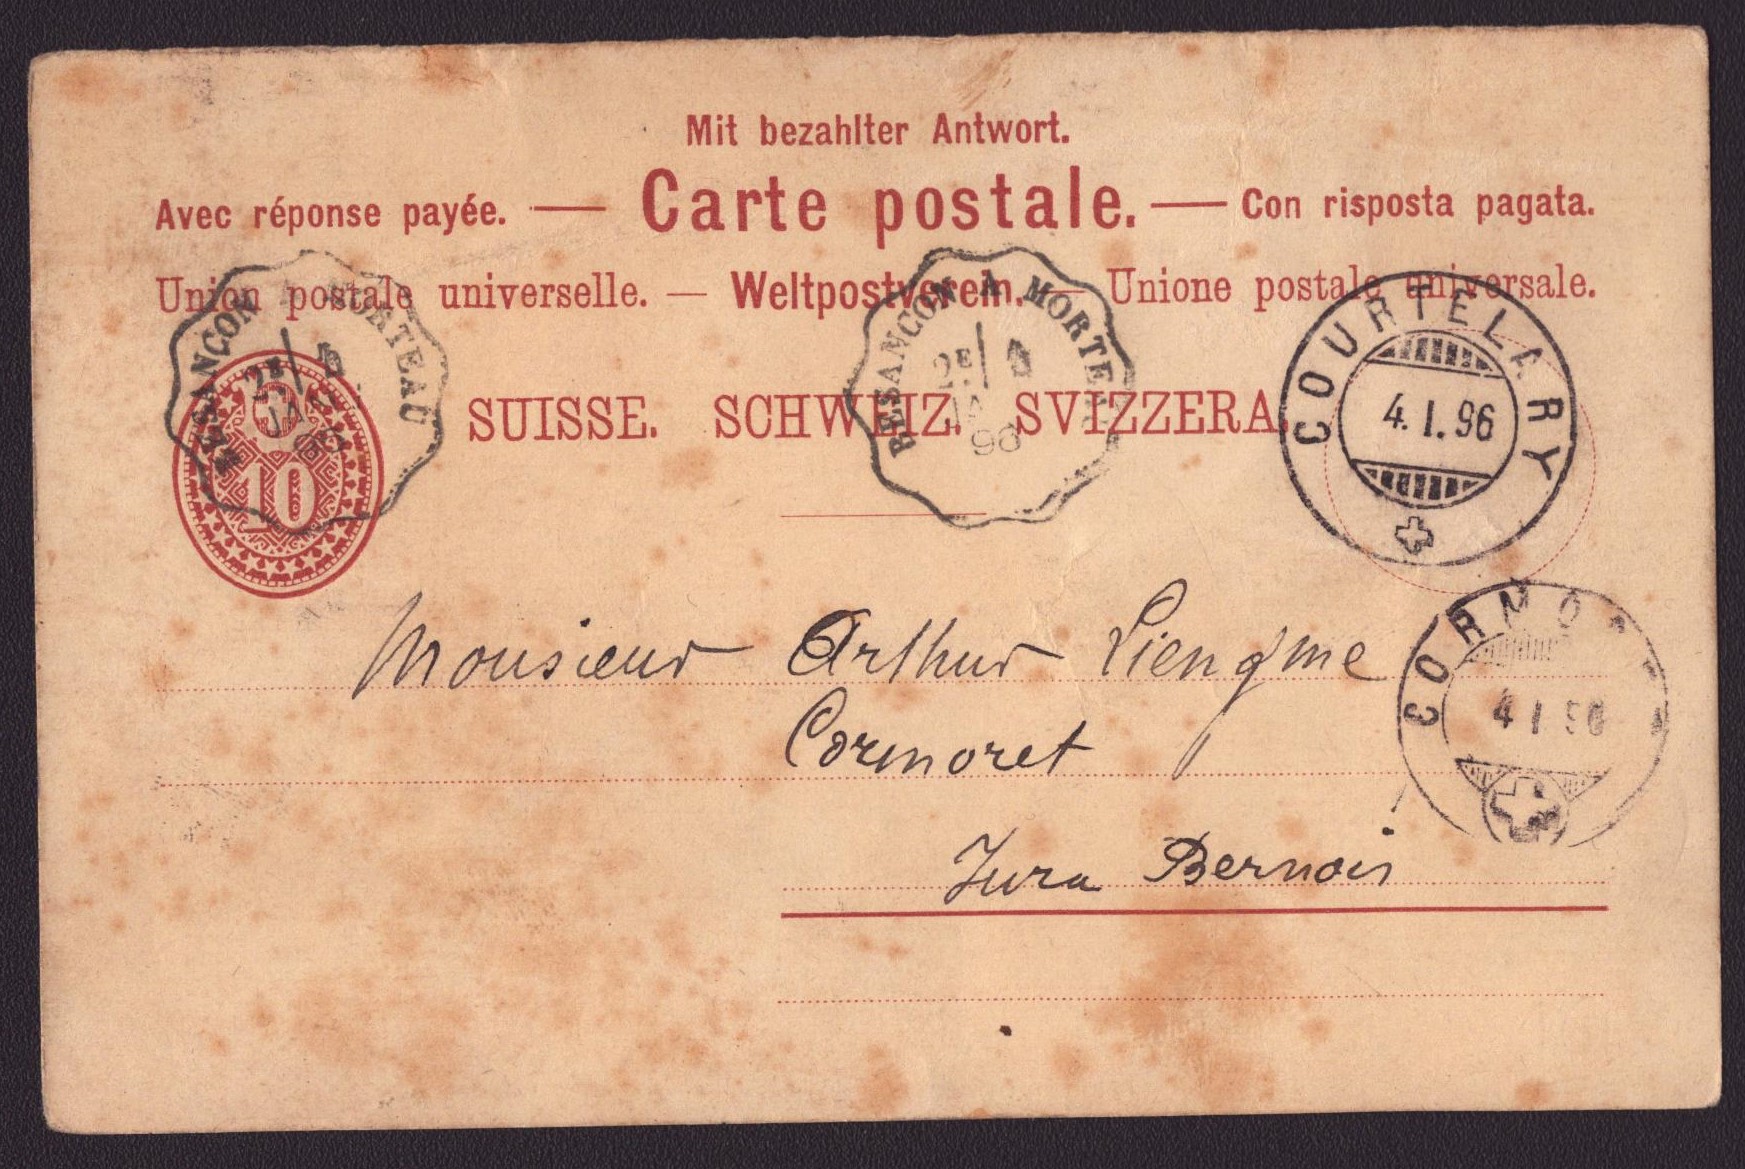 Mit bezahlter Antwort.
Avec réponse payée. — Carte postale. — Con risposta pagata.
Union postale universelle. — Weltpostverein. — Unione postale universale.
BESANCON A MORTEAU
2E
JANV
BESANCON A MORTEAU
2E
96
COURTELARY
4.I.96
SUISSE. SCHWEIZ. SVIZZERA.
10
Monsieur Arthur Liengme
Cormoret
4 I 96
Jura Bernois